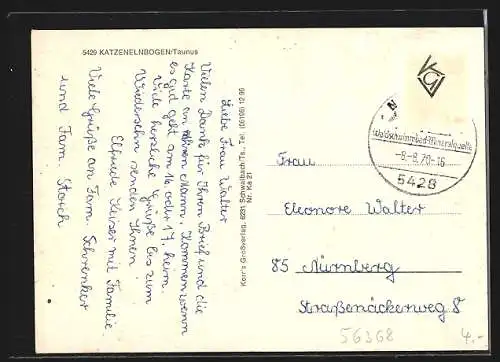 5429 KATZENELNBOGEN/Taunus
Liebe Frau Walter
Vielen Dank für Ihren Brief und die
Karte an Ihren Mann. Kommen wenn
es gut geht am 16. oder 17. heim.
Viele herzliche Grüße bis zum
Wiedersehn senden Ihnen
Elfriede Keiser mit Familie
Viele Grüße an Fam. Schrenker
und Fam Storch
Koch's Großverlag, 6233 Schwalbach/Ts., Tel. (06196) 12 96
Nr. Ka 21
Waldschwimmbad-Mineralquelle
-8.-8.70-16
5429
Frau
Eleonore Walter
85 Nürnberg
Straßenäckerweg 8
56368
4.-